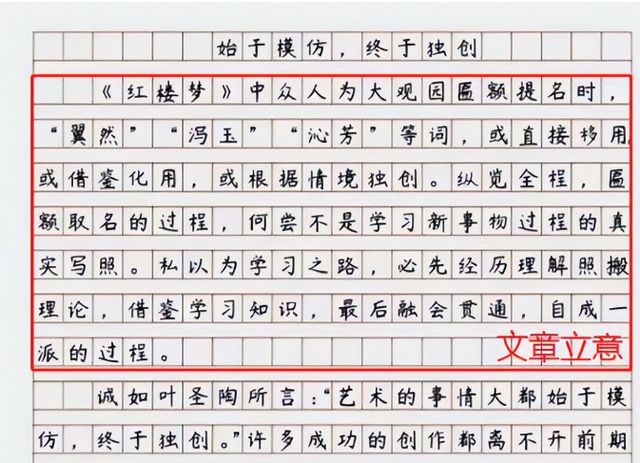 始于模仿，终于独创
《红楼梦》中众人为大观园匾额提名时，
“翼然”“冯玉”“沁芳”等词，或直接移用，
或借鉴化用，或根据情境独创。纵览全程，匾
额取名的过程，何尝不是学习新事物过程的真
实写照。私以为学习之路，必先经历理解照搬
理论，借鉴学习知识，最后融会贯通，自成一
派的过程。
文章立意
诚如叶圣陶所言：“艺术的事情大都始于模
仿，终于独创。”许多成功的创作都离不开前期